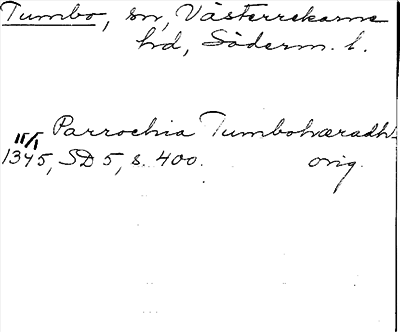 Tumbo, sn, Västerrekarne
hd, Söderm. l.
Parrochia Tumbohæradh
15/1
1345, SD 5, s. 400. orig.